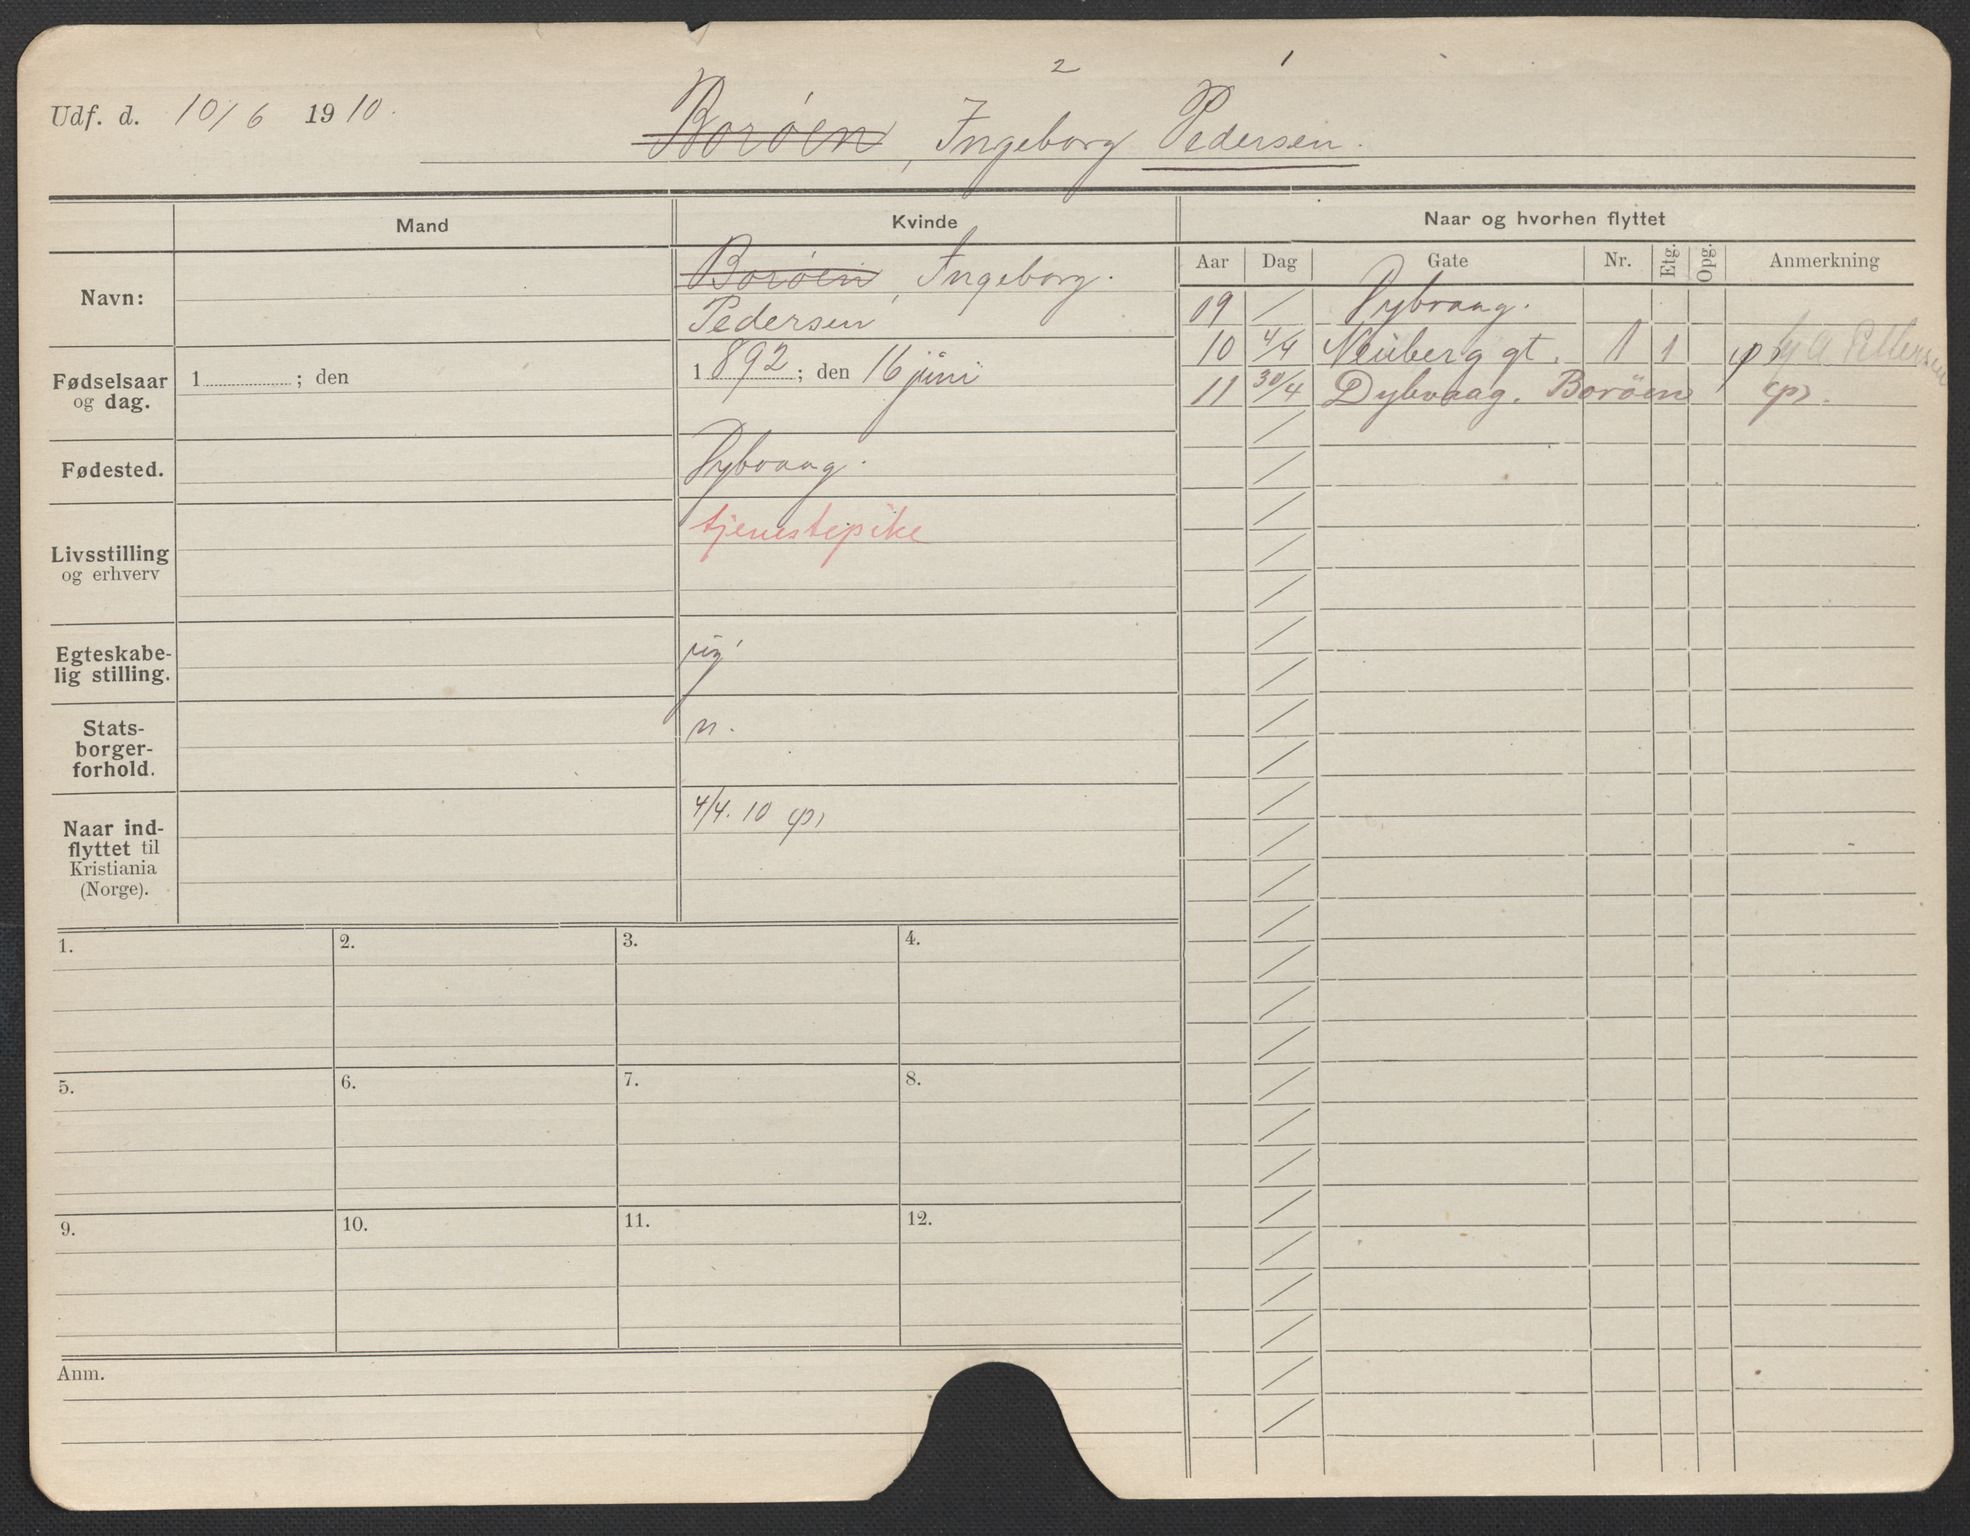 Udf. d. 10/6 1910.
2 1
Borøen, Ingeborg Pedersen.
Mand
Kvinde
Naar og hvorhen flyttet
Navn:
Borøen, Ingeborg.
Pedersen
Aar Dag Gate Nr. Etg. Opg. Anmerkning
09 Dybvaag.
10 4/4 Neuberg gt. 1 1 A Pettersen
11 30/4 Dybvaag. Borøen
Fødselsaar
og dag.
1 ; den
1892; den 16 juni
Fødested.
Dybvaag.
Livsstilling
og erhverv
tjenestepike
Egteskabe-
lig stilling.
ug
Stats-
borger-
forhold.
n.
Naar ind-
flyttet til
Kristiania
(Norge).
4/4. 10
1. 2. 3. 4.
5. 6. 7. 8.
9. 10. 11. 12.
Anm.